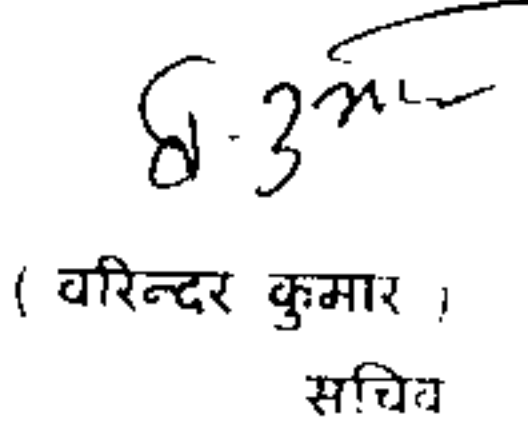 ( वरिन्दर कुमार )
सचिव